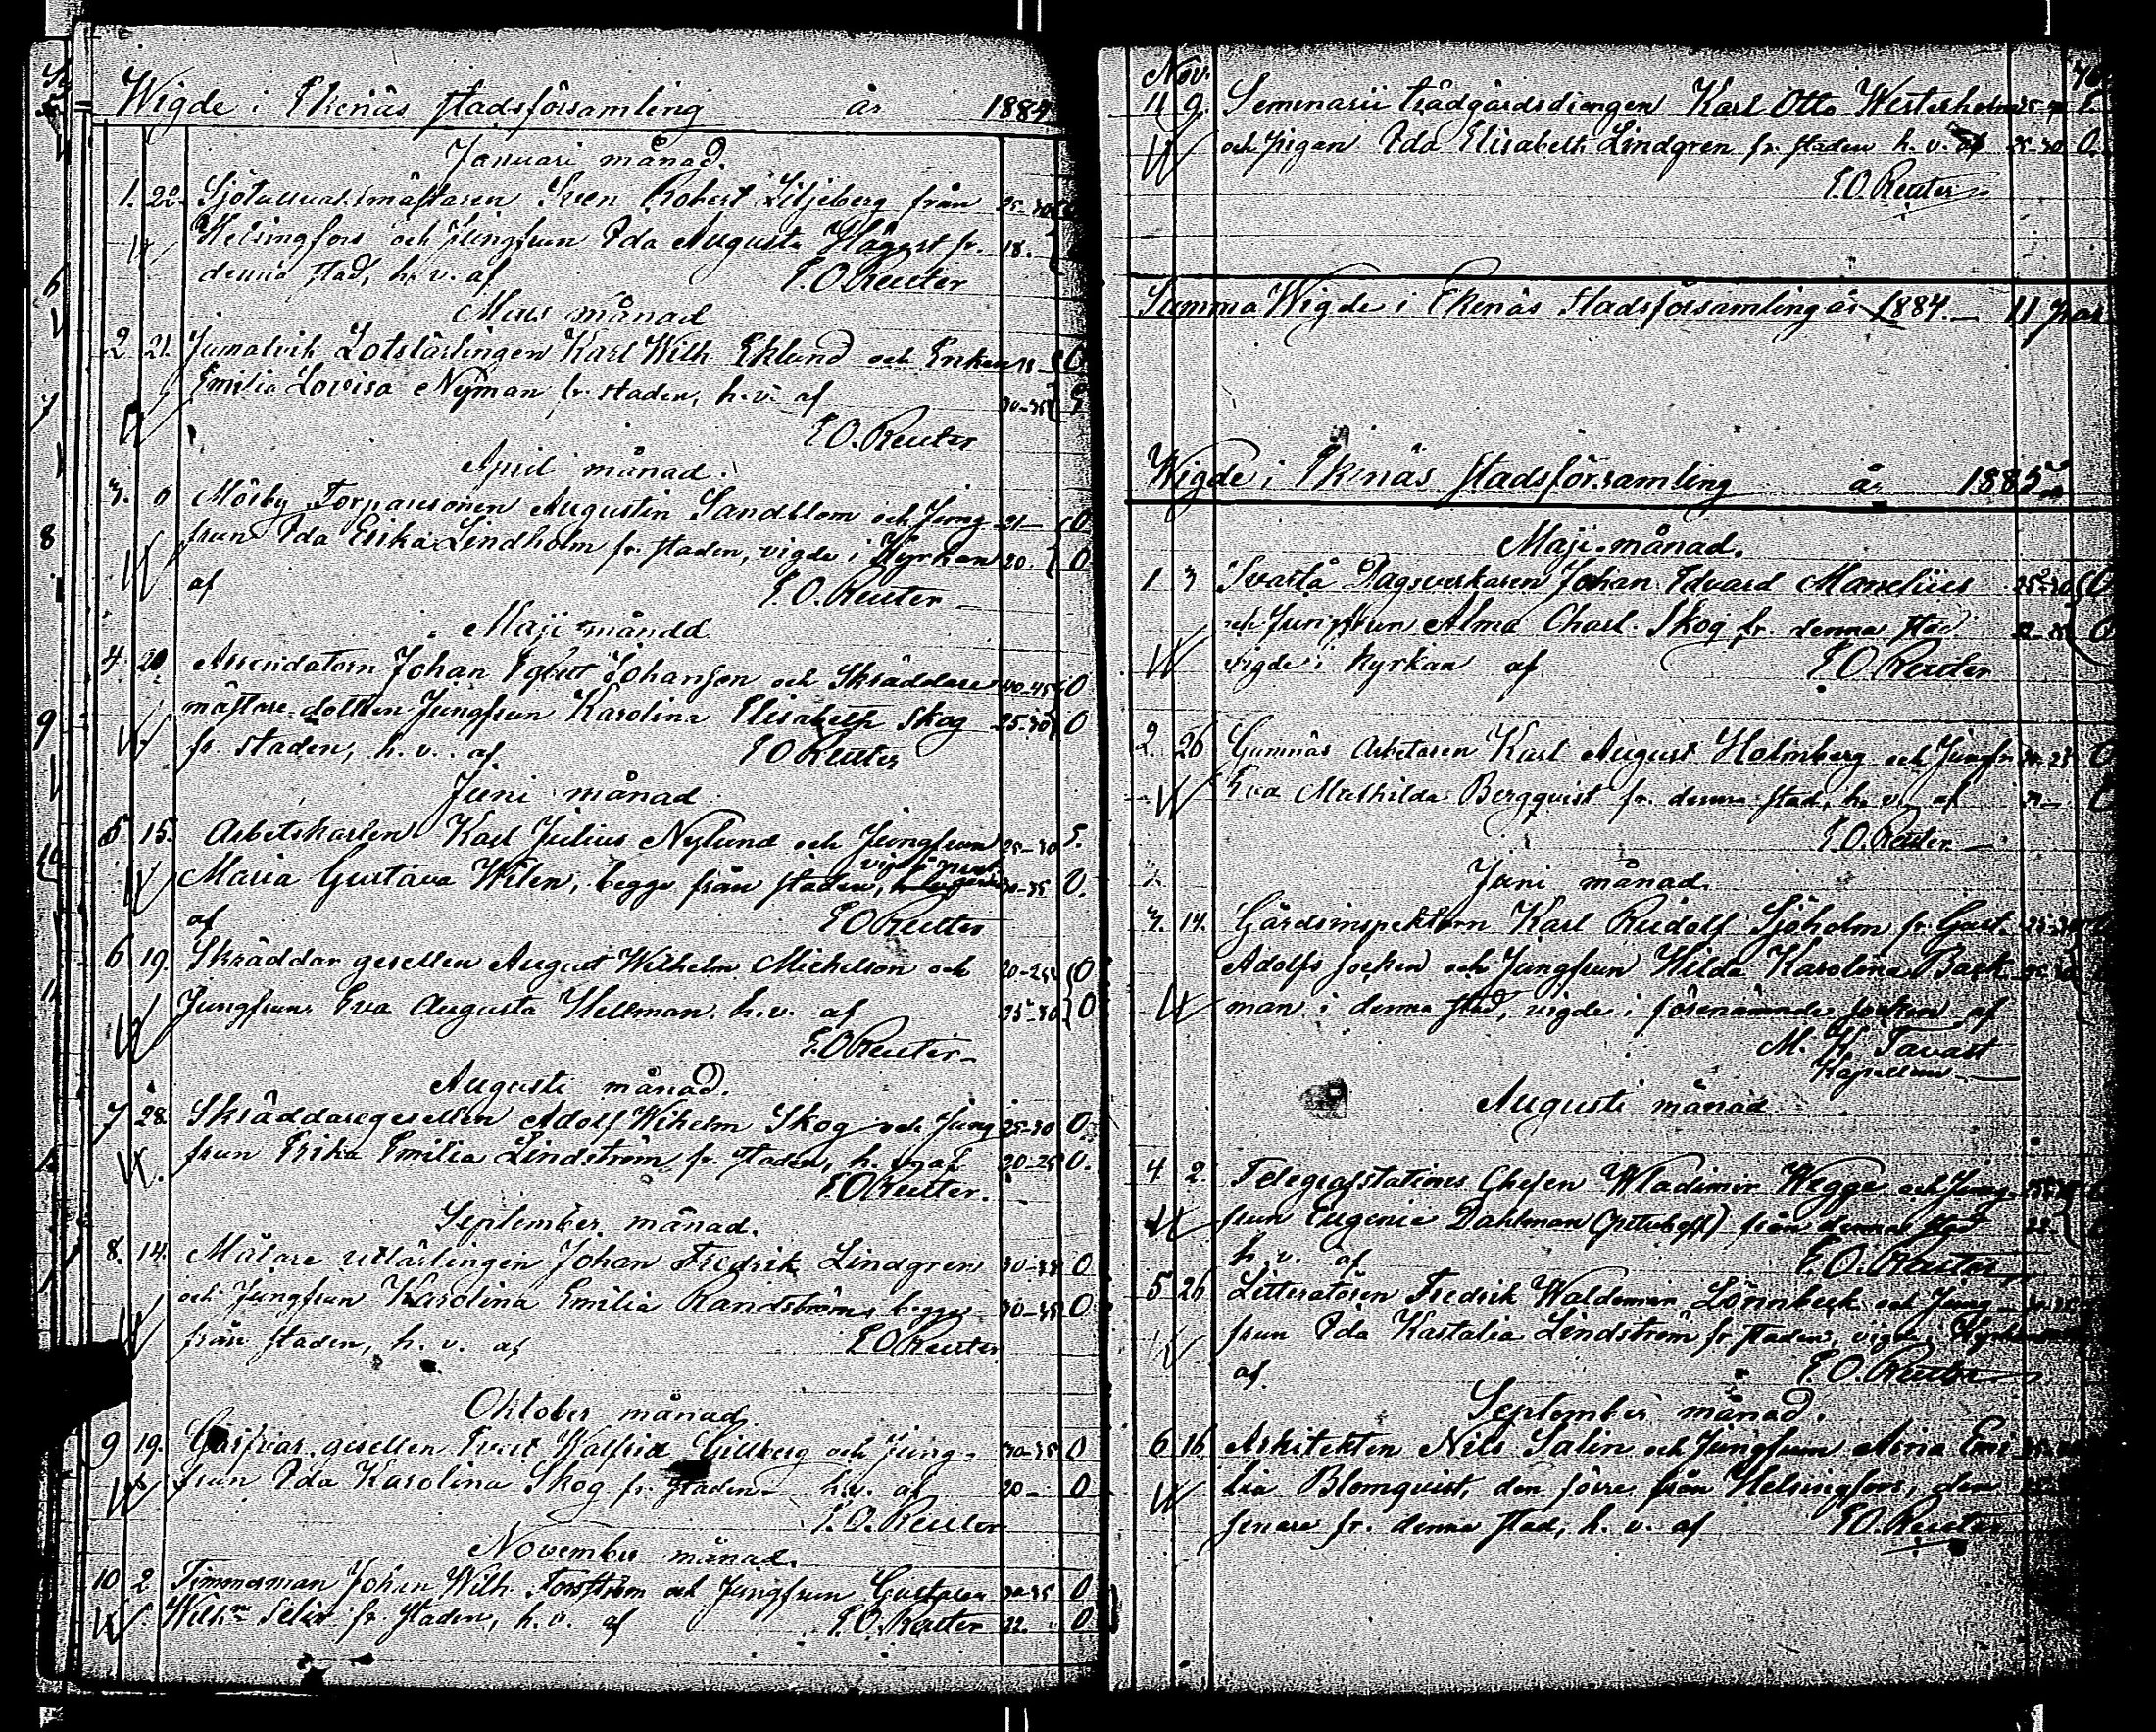 Wigde i Ekenäs stadsförsamling år 1884
Januari månad.
1. 22. Sjötullvaktmästaren Sven Robert Liljeberg från 25-30
Helsingfors och Jungfrun Ida Augusta fr. 18.
denna stad, h. v. af E. O. Reuter
Mars månad
2 21. Jumalvik Lotslärlingen Karl Wilh Eklund och Enkan
Emilia Lovisa Nyman fr. staden, h. v. af 30-35
E O. Reuter
April månad.
3. 6 Mörby Torparesonen Augustin Sandblom och Jung- 21- O
frun Ida Erika Lindholm fr. staden, vigde i Kyrkan 20. O
af E. O. Reuter
Maji månad
4. 20 Arrendatorn Johan Egbert Johanson och Skräddare- 40-45 O
mästare dottren Jungfrun Karolina Elisabeth Skog 25-30 O
fr. staden, h. v. af E O Reuter
Juni månad
5 15. Arbetskarlen Karl Julius Nylund och Jungfrun 25-30
Maria Gustava Wilen, begge från staden, O.
af E O Reuter
6 19. Skräddar gesellen August Wilhelm Michelson och 20-25 O
Jungfrun Eva Augusta Hellman. h. v. af 25-30 O
E. O Reuter
Augusti månad.
7 28. Skräddaregesellen Adolf Wilhelm Skog och Jung 25-30 O.
frun Erika Emilia Lindström fr. staden, h. v. af 20-25 O.
E. O Reuter.
September månad.
8. 14. Målare utlärlingen Johan Fredrik Lindgren 30-35 O
och Jungfrun Karolina Emilia Randström, begge 30-35 O
från staden, h. v. af E O Reuter
Oktober månad.
9 19. gesellen Walfrid Gillberg och Jung- 30-35 O
frun Ida Karolina Skog fr. staden h. v. af 20- O
E. O. Reuter
November månad.
10 2 Timmerman Johan Wilh. Forsström och Jungfrun Gustava 30-35 O
Wilhna Selin fr. staden, h. v. af E. O. Reuter 22. O
Nov.
11 9. Seminarii trädgårdsdrengen Karl Otto Westerholm
och pigan Ida Elisabeth Lindgren fr. staden h. v. af 25-30 O.
E. O. Reuter
Summa Wigde i Ekenäs Stadsförsamling år 1884 11 par
Wigde i Ekenäs stadsförsamling år 1885
Maji månad.
1 3 Svartå Dagsverkaren Johan Edvard Mamelius 25-30
och Jungfrun Alma Charl. Skog fr. denna stad
vigde i kyrkan af E O. Reuter
2. 26 Gumnäs Arbetaren Karl August Holmberg och Jungfr
Eva Mathilda Bergqvist fr. denna stad, h. v. af
E. O. Reuter
Juni månad.
3. 14. Gårdsinspektorn Karl Rudolf Sjöholm fr. Gust. 25-30
Adolfs socken och Jungfrun Hilda Karolina Back-
man i denna stad, vigde i förenämnde socken af
M. W. Tavast
Kapellan
Augusti månad
4 2. Telegrafstations Chefen Wladimir Wegge och Jung-
frun Eugenie Dahlman från denna stad
h. v. af E. O. Reuter
5 26 Litteratören Fredrik Waldemar Lönnbeck och Jung-
frun Ida Kastalia Lindström fr. staden, vigde i Kyrkan
af E. O. Reuter
September månad.
6 16 Arkitekten Nils Salin och Jungfrun Aina Emi
lia Blomqvist, den förre från Helsingfors, den
senare fr. denna stad, h. v. af E O. Reuter